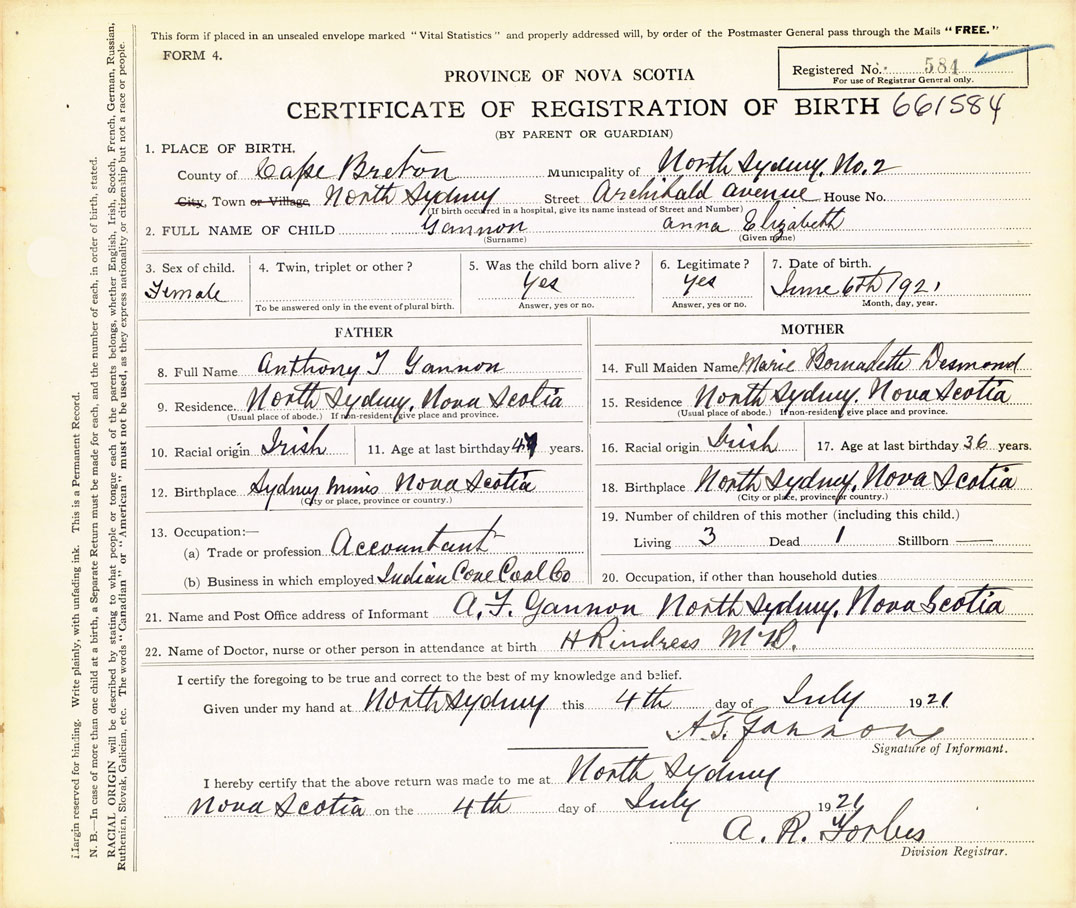 This form if placed in an unsealed envelope marked "Vital Statistics" and properly addressed will, by order of the Postmaster General pass through the Mails "FREE."
FORM 4.
Registered No. 584
For use of Registrar General only.
PROVINCE OF NOVA SCOTIA
CERTIFICATE OF REGISTRATION OF BIRTH 661584
(BY PARENT OR GUARDIAN)
1. PLACE OF BIRTH.
County of Cape Breton Municipality of North Sydney. No. 2
City, Town or Village, North Sydney Street Archibald avenue House No.
(If birth occurred in a hospital, give its name instead of Street and Number)
2. FULL NAME OF CHILD Gannon anna Elizabeth
(Surname) (Given name)
3. Sex of child. 4. Twin, triplet or other? 5. Was the child born alive? 6. Legitimate? 7. Date of birth.
Female Yes Yes June 6th 1921
To be answered only in the event of plural birth. Answer, yes or no. Answer, yes or no. Month, day, year.
FATHER
8. Full Name Anthony T Gannon
9. Residence. North Sydney, Nova Scotia
(Usual place of abode.) If non-resident, give place and province.
10. Racial origin Irish 11. Age at last birthday years.
12. Birthplace Sydney Mines Nova Scotia
(City or place, province or country.)
13. Occupation:—
(a) Trade or profession Accountant
(b) Business in which employed Indian Cove Coal Co
MOTHER
14. Full Maiden Name Marie Bernadette Desmond
15. Residence North Sydney, Nova Scotia
(Usual place of abode.) If non-resident, give place and province.
16. Racial origin Irish 17. Age at last birthday 36 years.
18. Birthplace North Sydney, Nova Scotia
(City or place, province or country.)
19. Number of children of this mother (including this child.)
Living 3 Dead 1 Stillborn —
20. Occupation, if other than household duties
21. Name and Post Office address of Informant A. T. Gannon North Sydney, Nova Scotia
22. Name of Doctor, nurse or other person in attendance at birth H Rindress M.D.
I certify the foregoing to be true and correct to the best of my knowledge and belief.
Given under my hand at North Sydney this 4th day of July 1921
A. T. Gannon
Signature of Informant.
I hereby certify that the above return was made to me at North Sydney
Nova Scotia on the 4th day of July 1921
A. R. Forbes
Division Registrar.
Margin reserved for binding. Write plainly, with unfading ink. This is a Permanent Record.
N. B.—In case of more than one child at a birth, a Separate Return must be made for each, and the number of each, in order of birth, stated.
RACIAL ORIGIN will be described by stating to what people or tongue each of the parents belongs, whether English, Irish, Scotch, French, German, Russian,
Ruthenien, Slovak, Galician, etc. The words "Canadian" or "American" must not be used, as they express nationality or citizenship but not a race or people.